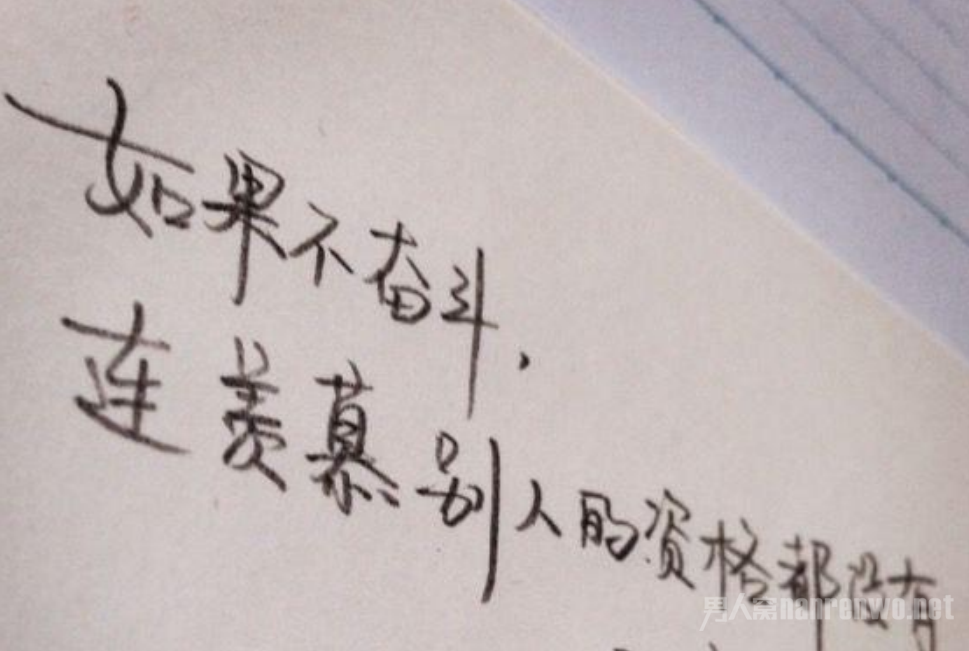 如果不奋斗,
连羡慕别人的资格都没有
男人窝nanrenwo.net